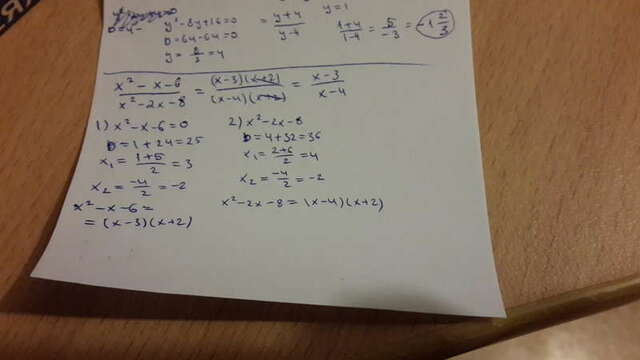 D=4-
y²-8y+16=0
D=64-64=0
y=8/2=4
=y+4/y-4
y=1
1+4/1-4=5/-3=-1 2/3
x²-x-6/x²-2x-8=(x-3)(x+2)/(x-4)(x+2)=x-3/x-4
1) x²-x-6=0
D=1+24=25
x₁=1+5/2=3
x₂=-4/2=-2
x²-x-6=
=(x-3)(x+2)
2) x²-2x-8
D=4+32=36
x₁=2+6/2=4
x₂=-4/2=-2
x²-2x-8=(x-4)(x+2)